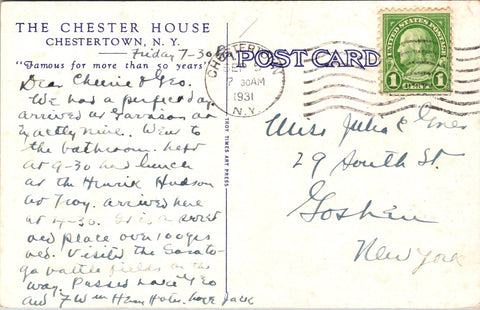 THE CHESTER HOUSE
CHESTERTOWN, N. Y.
Friday 7-30
"Famous for more than 50 years"
POST CARD
CHESTERTOWN
7 30AM
1931
N.Y.
1
TROY TIMES ART PRESS
Dear & Geo.
We had a perfect day
arrived at at
exactly nine. Went to
the bathroom. Left
at 9-30 had lunch
at the Henrik Hudson
at Troy. arrived here
at 4-30. It is a sweet
old place over 100 yrs
old. Visited the Sarato-
ga battle fields on the
way. Passed Lake Geo
and Hotel. Love Jack
Miss Julia
29 South St.
Goshen
New York